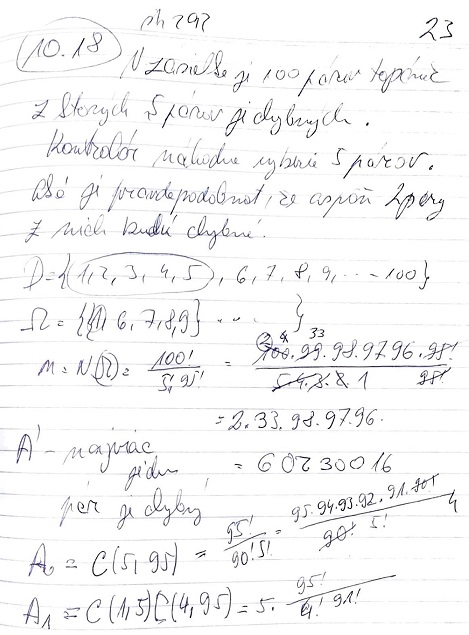 str 292
23
10.18 V zásielke je 100 párov topánok
z ktorých 5 párov je chybných.
Kontrolór náhodne vyberie 5 párov.
aká je pravdepodobnosť, že aspoň 2 páry
z nich budú chybné.
D = {1, 2, 3, 4, 5, 6, 7, 8, 9, ... 100}
Ω = {{1, 6, 7, 8, 9} ... }
m = N(Ω) = 100! / 5! 95! = 100. 99. 98. 97. 96. 95! / 5. 4. 3. 2. 1 95!
= 2. 33. 98. 97. 96.
A' - najviac
jeden = 60230016
pár je chybný
A₀ = C(5, 95) = 95! / 90! 5! = 95. 94. 93. 92. 91. 90! / 90! 5!
A₁ = C(1, 5) C(4, 95) = 5. 95! / 4! 91!